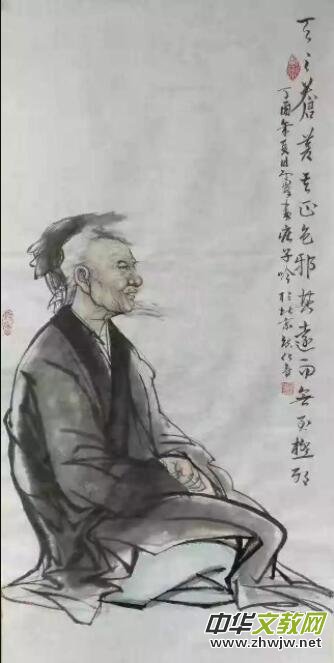 天之蒼蒼其正色邪其遠而無至極邪
丁酉年夏月莊子吟於北京
中华文教网
www.zhwjw.net